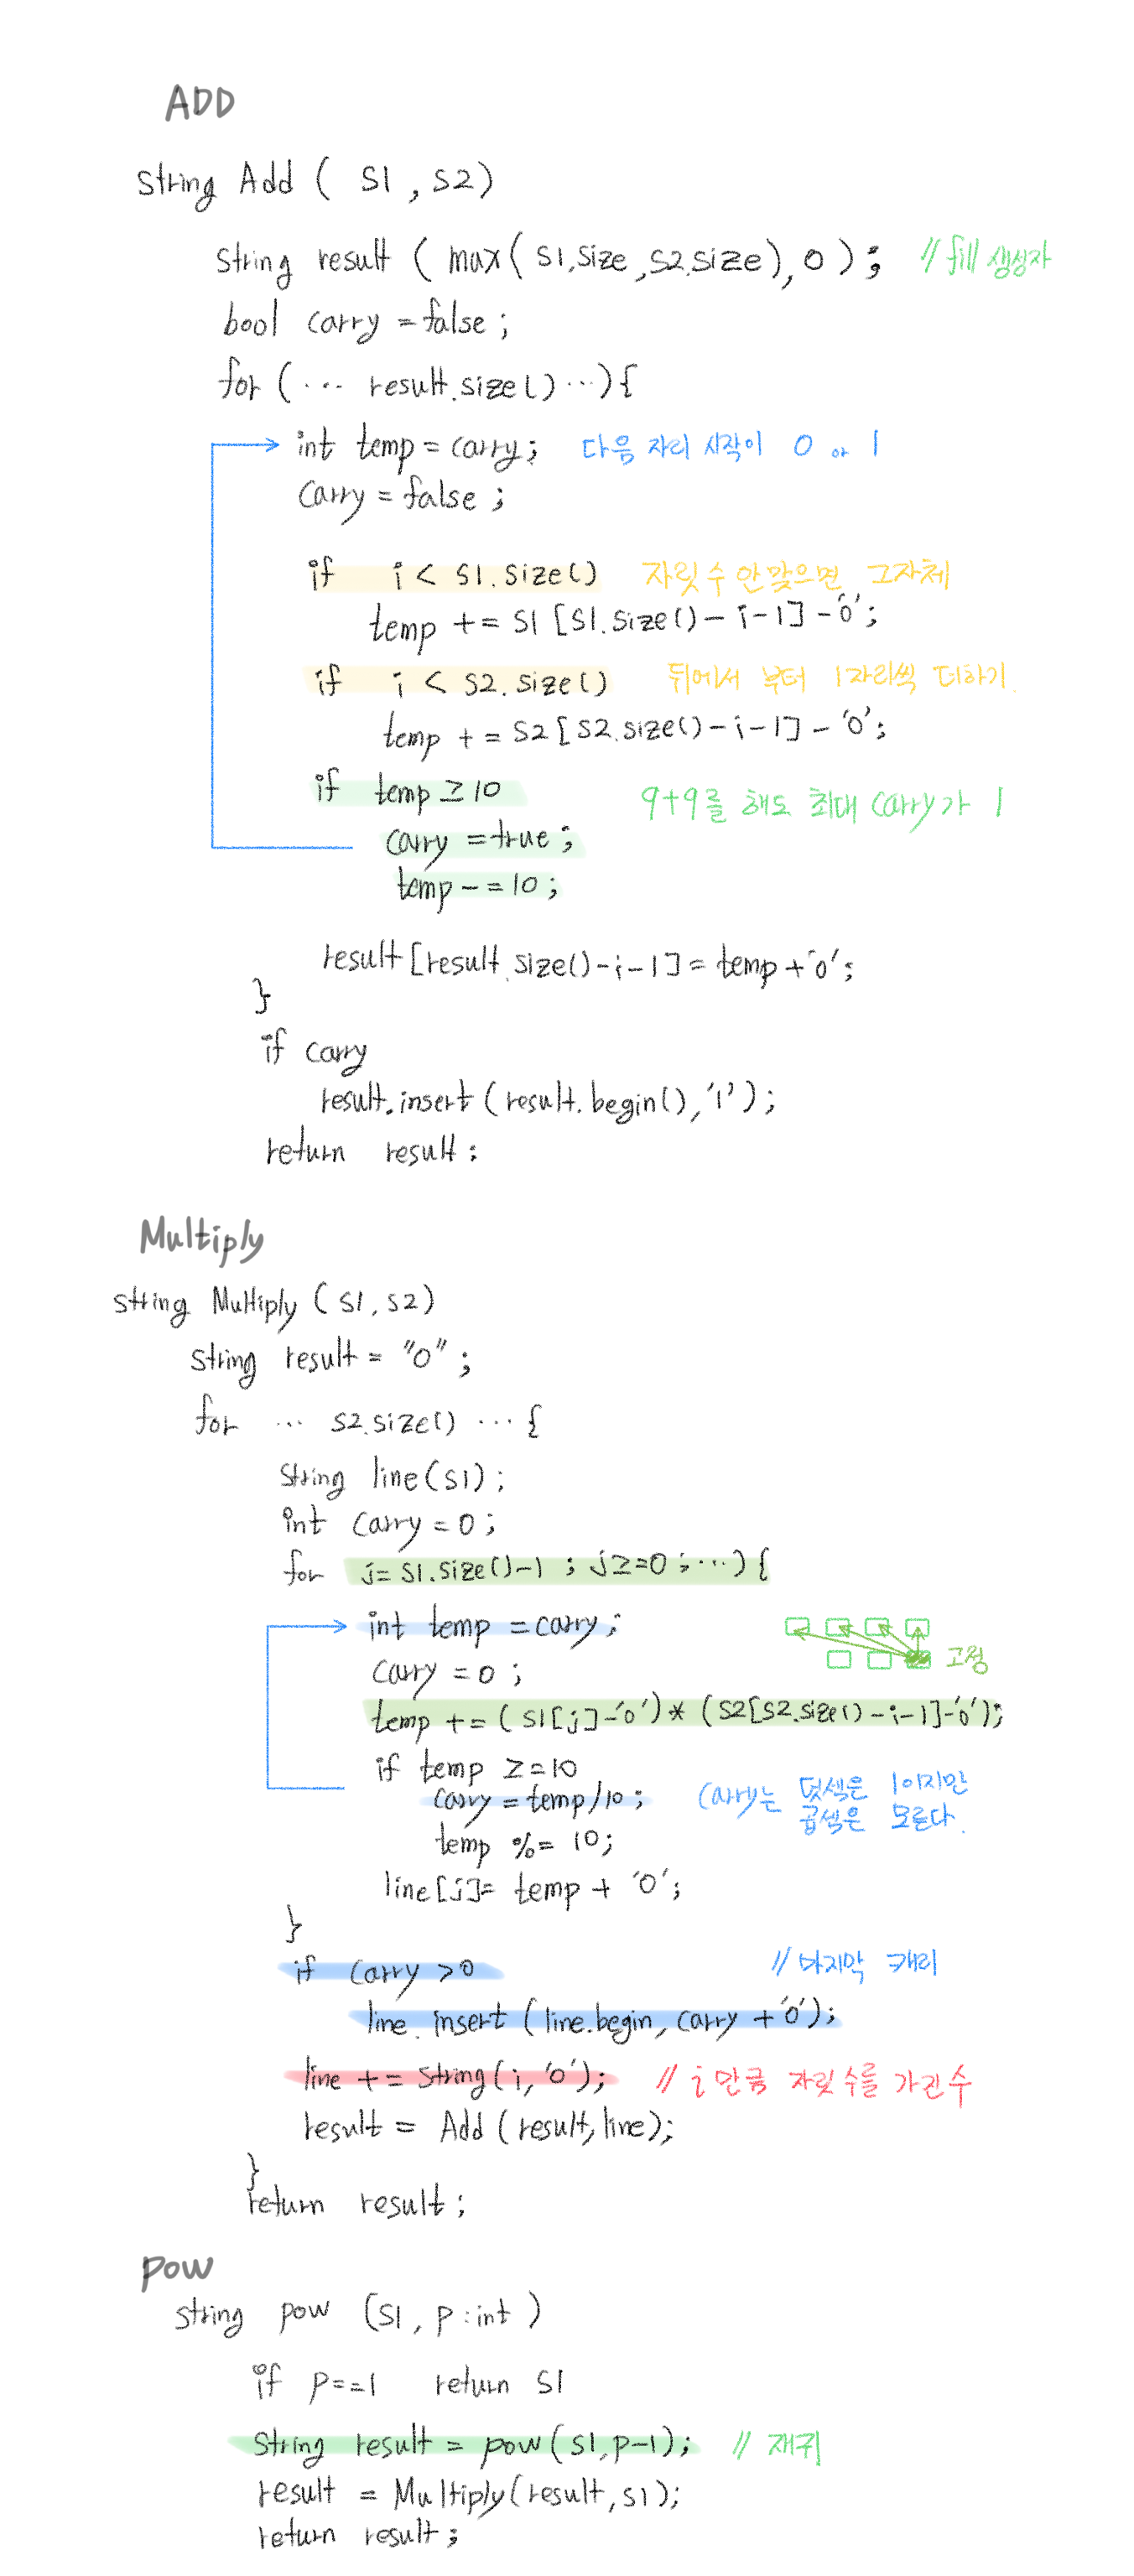 ADD
string Add ( S1 , S2)
string result ( max( S1.size, S2.size), 0 ) ; // fill 생성자
bool carry = false ;
for (... result.size() ...){
int temp = carry; 다음 자리 시작이 0 or 1
carry = false ;
if i < S1.size() 자릿수 안맞으면 그자체
temp += S1 [S1.size() - i - 1] - '0';
if i < S2.size() 뒤에서 부터 1자리씩 더하기.
temp += S2 [S2.size() - i - 1] - '0';
if temp ≥ 10 9+9를 해도 최대 carry가 1
carry = true ;
temp -= 10 ;
result [result.size() - i - 1] = temp + '0';
}
if carry
result.insert (result.begin(), '1');
return result ;
Multiply
string Multiply (S1, S2)
string result = "0" ;
for ... S2.size() ... {
string line(S1);
int carry = 0 ;
for j= S1.size()-1 ; j>=0 ; ...) {
int temp = carry;
carry = 0 ; 고정
temp += (S1[j]-'0') * (S2[S2.size() - i - 1]-'0');
if temp >=10
carry = temp/10; carry는 덧셈은 1이지만
곱셈은 모른다.
temp %= 10;
line[j]= temp + '0';
}
if carry >0 // 마지막 캐리
line. insert (line.begin, carry + '0');
line += string(i, '0'); // i 만큼 자릿수를 가진수
result = Add (result, line);
}
return result ;
pow
string pow (S1, p : int )
if p==1 return S1
string result = pow(S1, p-1); // 재귀
result = Multiply(result, S1);
return result ;